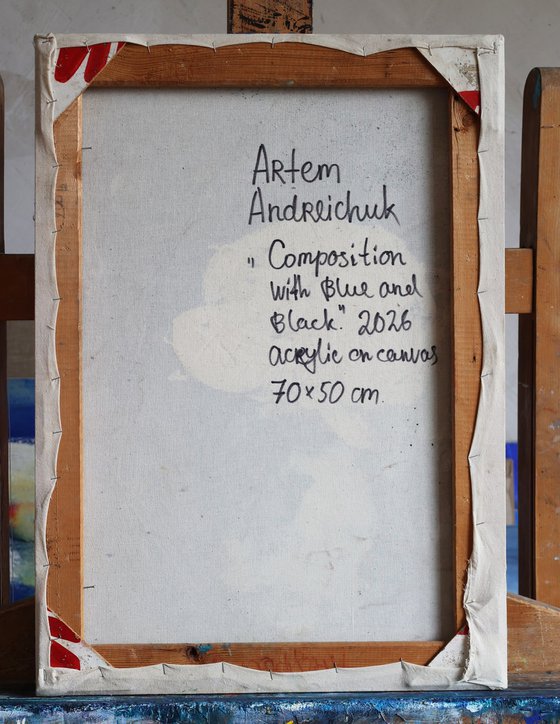 Artem
Andreichuk
"Composition
with Blue and
Black." 2026
acrylic on canvas
70x50 cm.